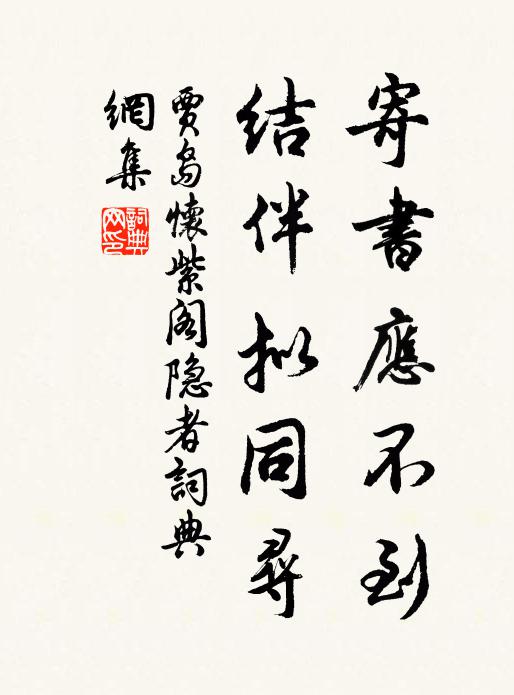 寄書應不到
結伴拟同尋
賈島懷紫阁隐者詞典
網集
詞典
网印